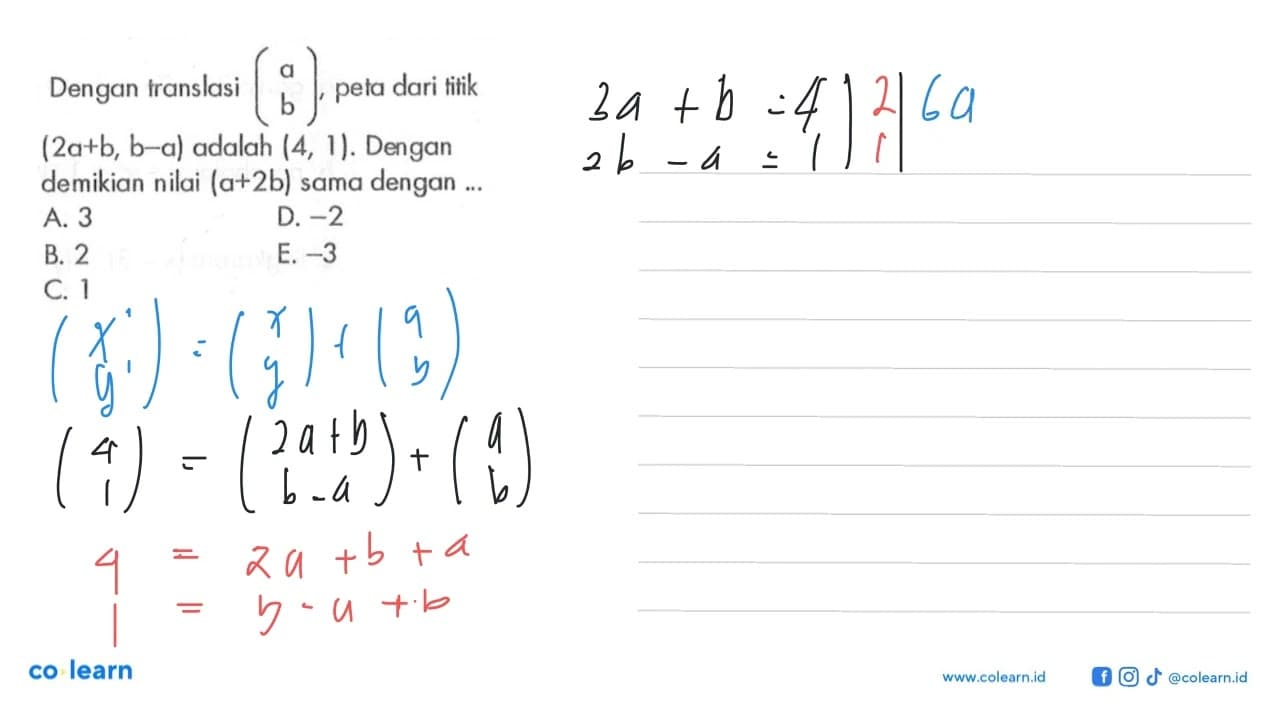 Dengan translasi (a b), peta dari titik
(2a+b, b-a) adalah (4, 1). Dengan
demikian nilai (a+2b) sama dengan ...
A. 3 D. -2
B. 2 E. -3
C. 1
(x' y') = (x y) + (a b)
(4 1) = (2a+b b-a) + (a b)
4 = 2a + b + a
1 = b - a + b
3a + b = 4 | 2 | 6a
2b - a = 1 | 1 |
co learn
www.colearn.id
@colearn.id